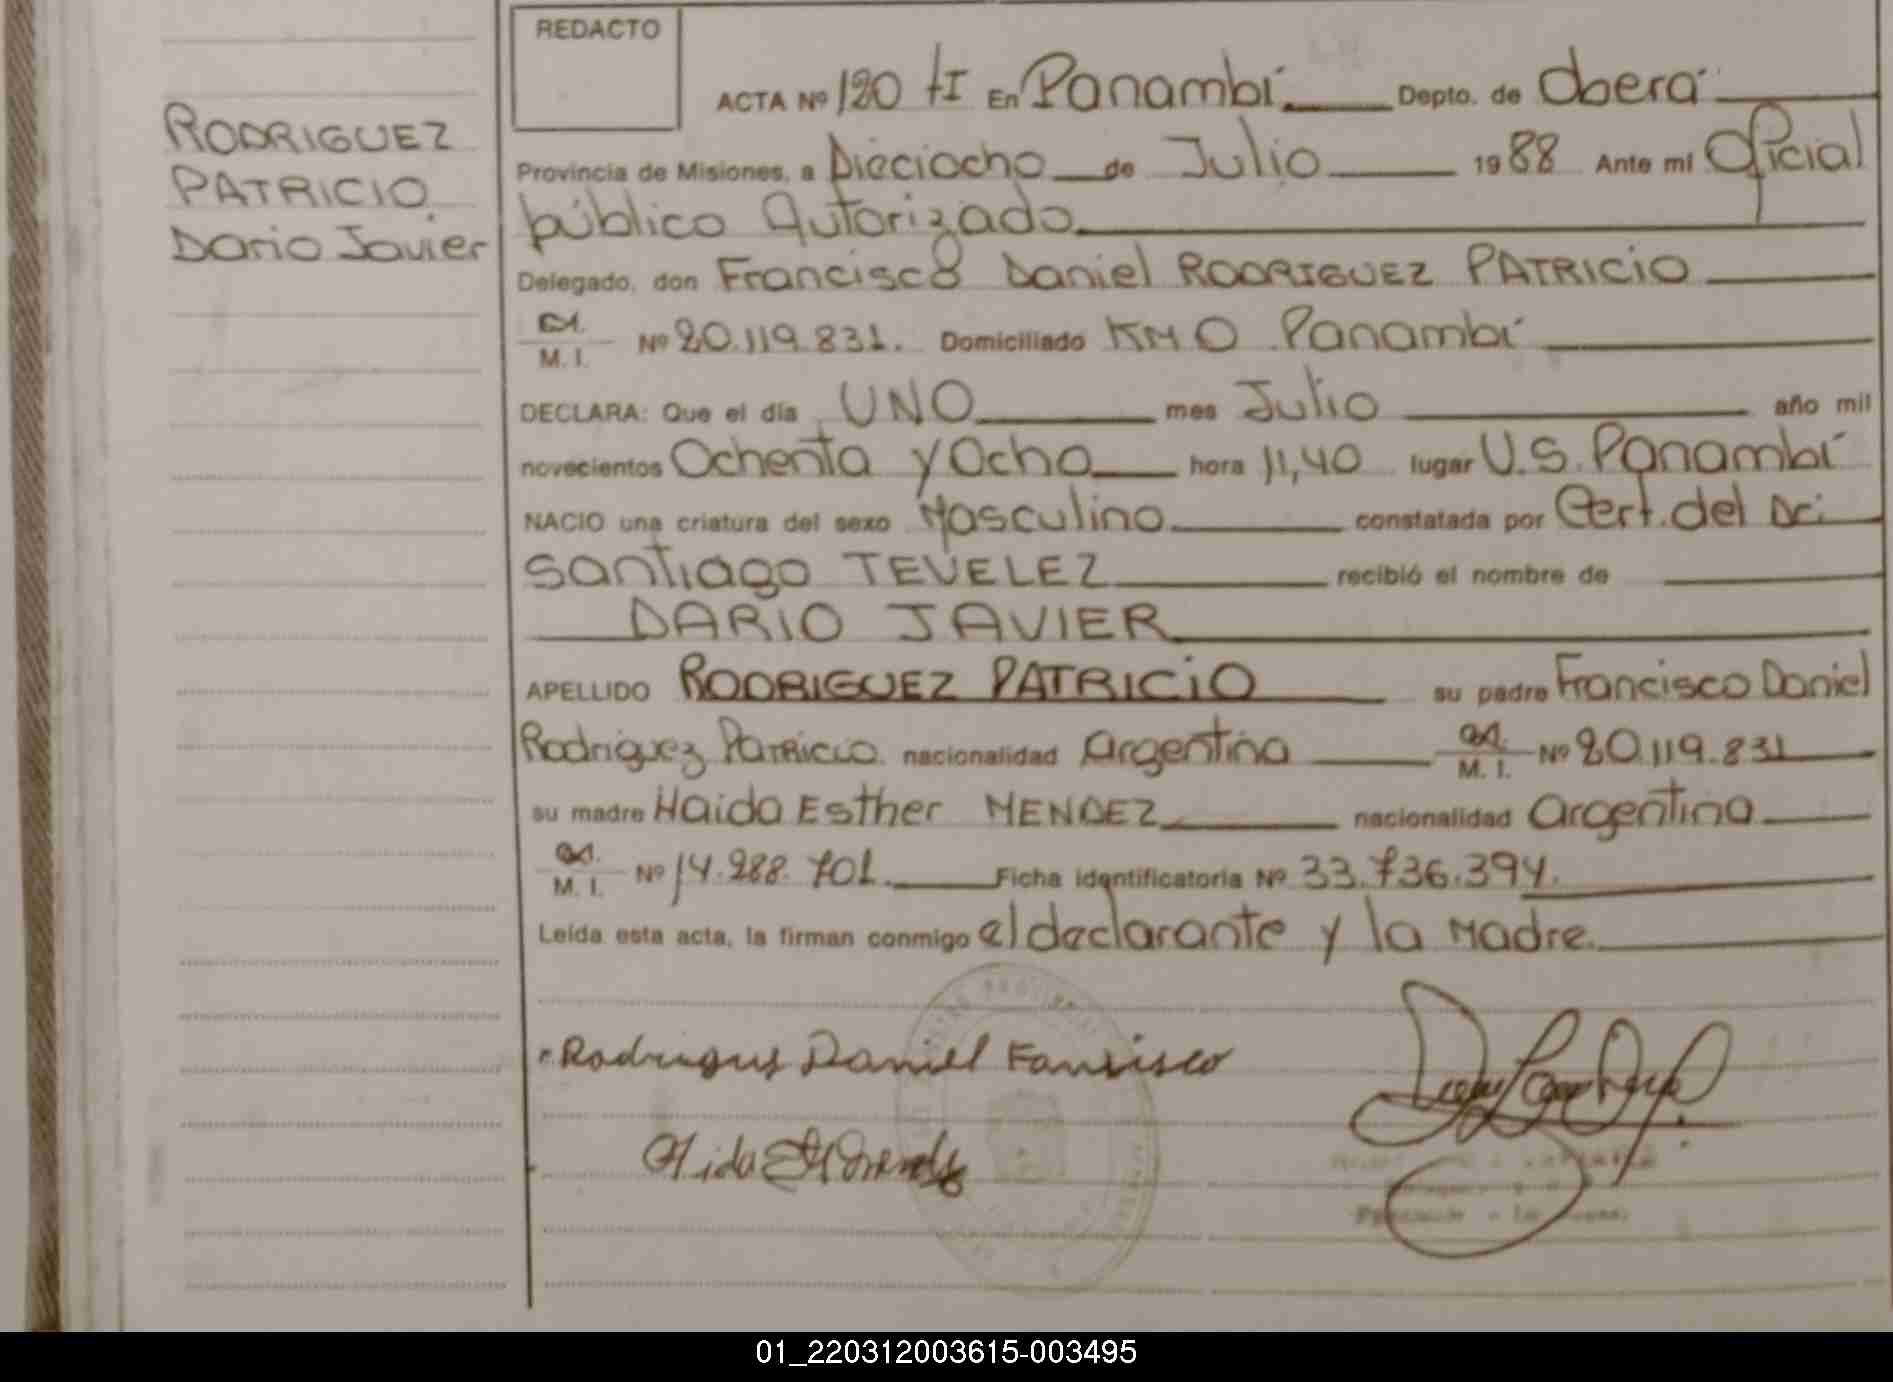 REDACTO
ACTA Nº 120 tI En Panambí Depto. de Oberá
RODRIGUEZ
PATRICIO
Dario Javier
Provincia de Misiones, a Dieciocho de Julio 1988 Ante mi Oficial
público Autorizado
Delegado, don Francisco Daniel RODRIGUEZ PATRICIO
M. I. Nº 20.119.831. Domiciliado KM 0 Panambí
DECLARA: Que el día UNO mes Julio año mil
novecientos Ochenta y Ocho hora 11,40 lugar U.S. Panambí
NACIO una criatura del sexo Masculino constatada por Cert. del
Santiago TEVELEZ recibió el nombre de
DARIO JAVIER
APELLIDO RODRIGUEZ PATRICIO su padre Francisco Daniel
Rodriguez PATRICIO nacionalidad Argentina M. I. Nº 20.119.831
su madre Haida Esther MENDEZ nacionalidad Argentina
M. I. Nº 14.288.701 Ficha identificatoria Nº 33.736.394.
Leída esta acta, la firman conmigo el declarante y la Madre.
Daniel
01_220312003615-003495